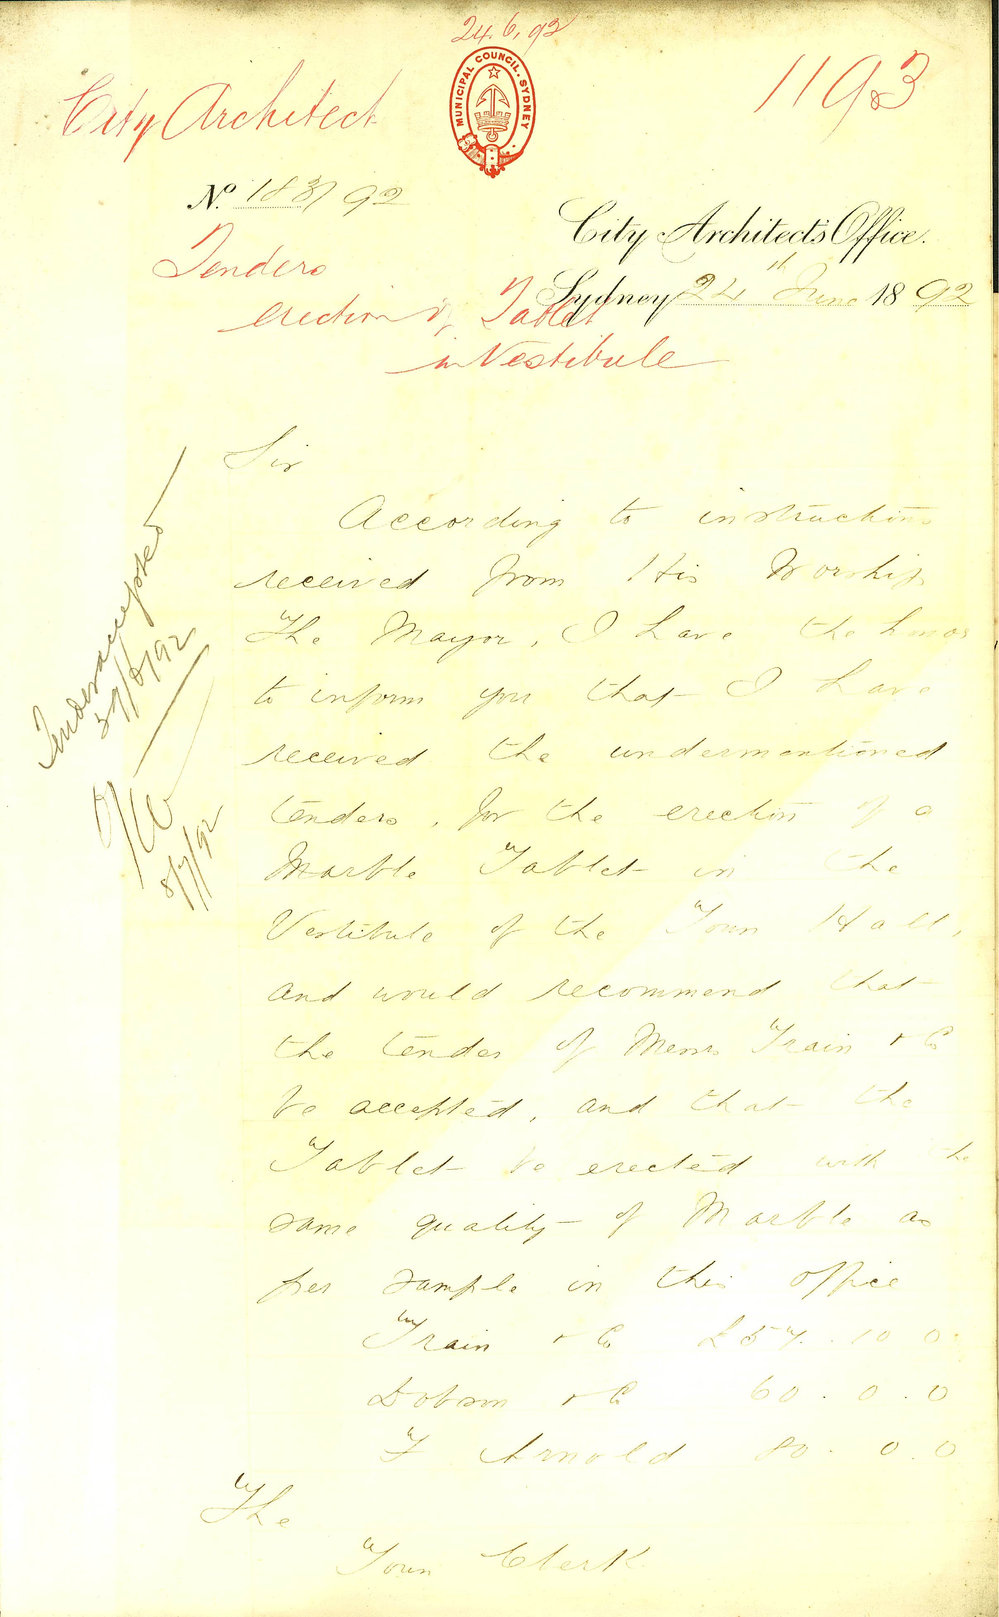 24.6.92
MUNICIPAL COUNCIL. SYDNEY
1193
City Architect
No. 183/92
City Architects Office.
Sydney 24th June 1892
Tenders
erection of Tablet
in Vestibule
Sir
According to instructions
received from His Worship
The Mayor, I have the honor
to inform you that I have
received the undermentioned
tenders, for the erection of a
Marble Tablet in the
Vestibule of the Town Hall,
and would recommend that
the tender of Messrs Train & Co
be accepted, and that the
Tablet be erected with the
same quality of Marble as
per sample in this office
Train & Co £57.10.0
Dobson & Co 60.0.0
F Arnold 80.0.0
The
Town Clerk
Tender accepted
8/7/92